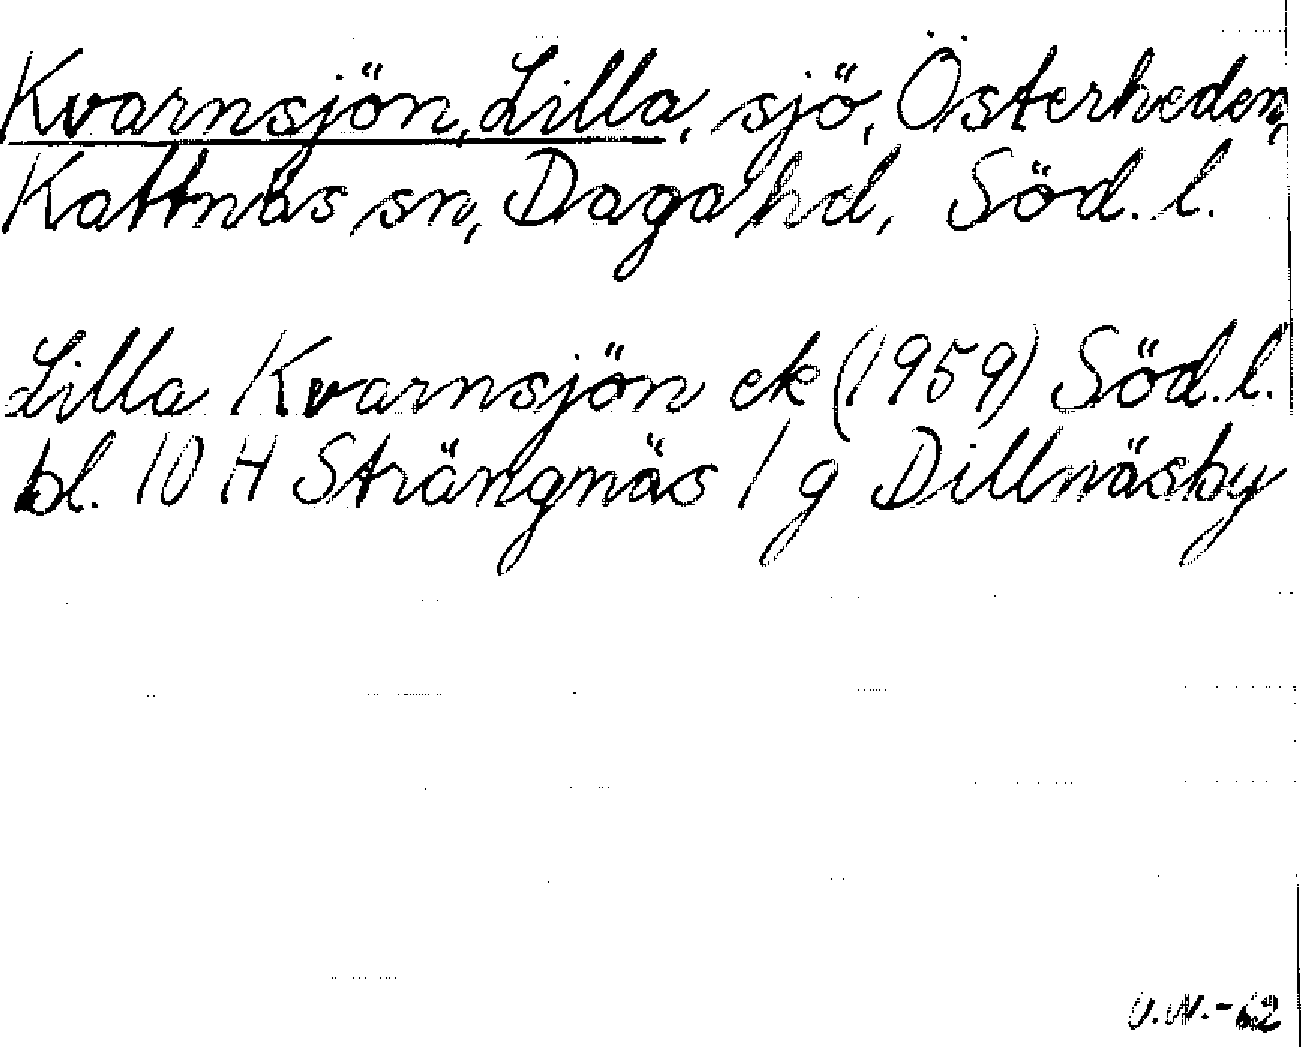 Kvarnsjön, Lilla, sjö, Österheden,
Kattnäs sn, Daga hd, Söd. l.
Lilla Kvarnsjön ek (1959) Söd. l.
bl. 10 H Strängnäs 1 g Dillnäsby
U.N.-62